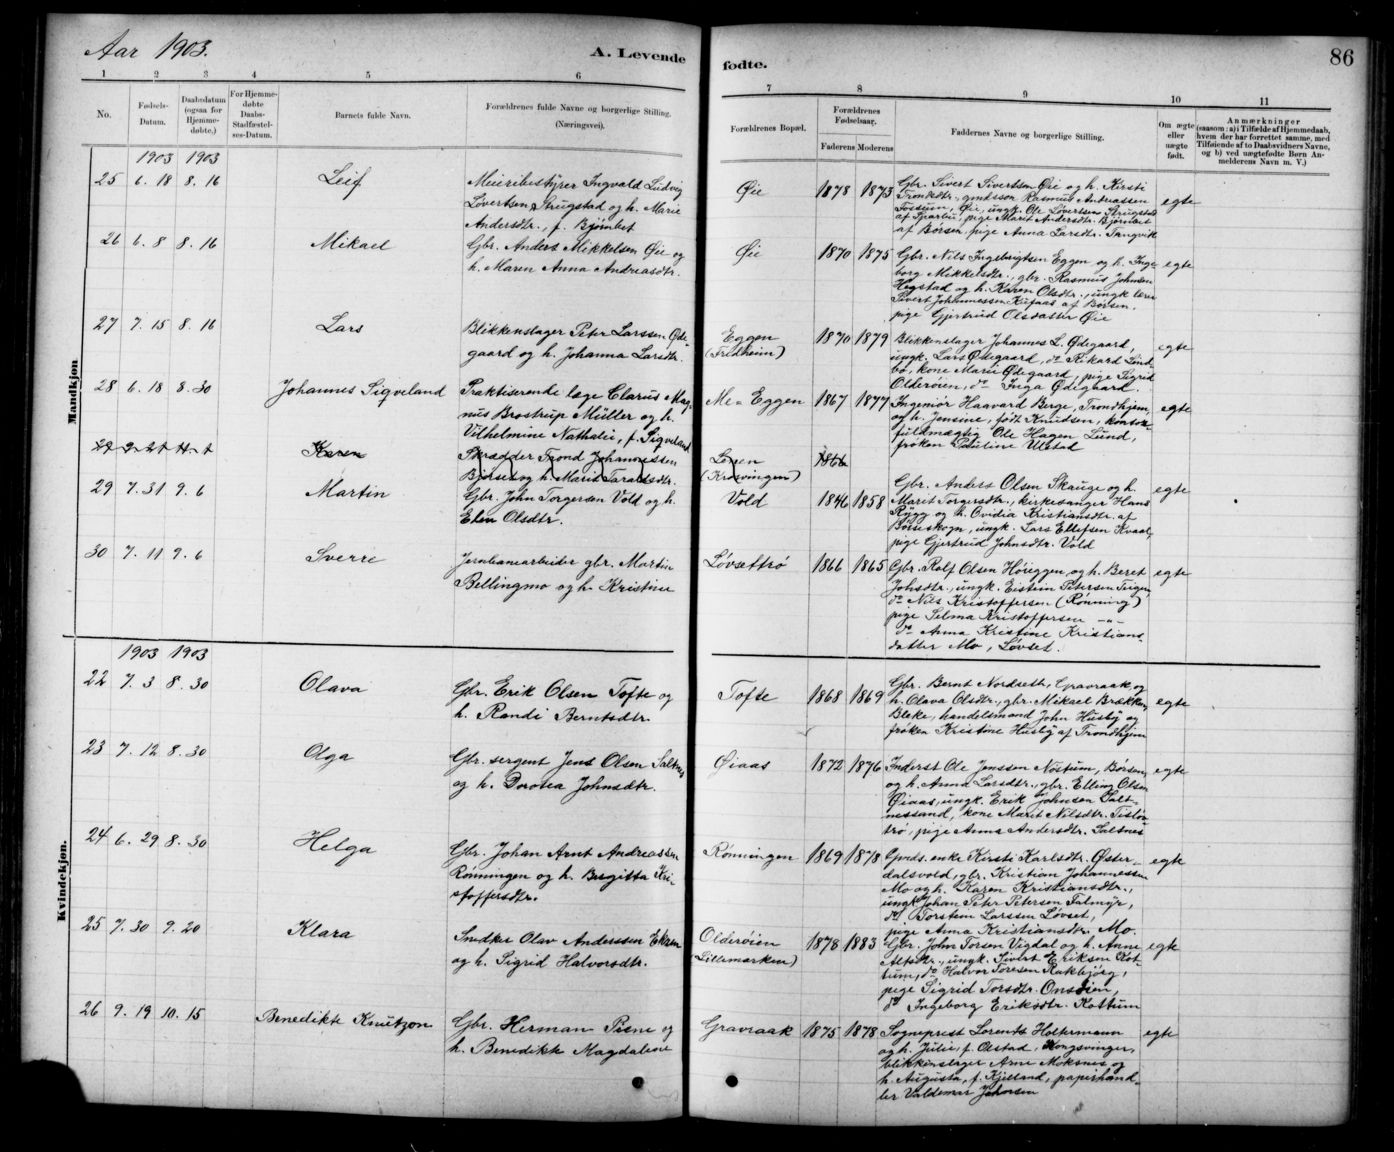 Aar 1903.
A. Levende fødte.
86
1 2 3 4 5 6 7 8 9 10 11
No.
Fødsels-Datum.
Daabsdatum (ogsaa for Hjemmedøbte.)
For Hjemmedøbte Daabs-Stadfæstelses-Datum.
Barnets fulde Navn.
Forældrenes fulde Navne og borgerlige Stilling. (Næringsvei).
Forældrenes Bopæl.
Forældrenes Fødselsaar.
Faderens Moderens
Faddernes Navne og borgerlige Stilling.
Om ægte eller uægte født.
Anmærkninger
(saasom: a) i Tilfælde af Hjemmedaab, hvem der har forrettet samme, med Tilføiende af to Daabsvidners Navne, og b) ved uægtefødte Børn Anmelderens Navn m. V.)
Mandkjøn
1903 1903
25 6. 18 8. 16 Leif
Meieribestyrer Ingvald Ludvig
Løvertsen Strugstad og h. Marie
Andersdtr., f. Bjørnbet
Øie 1878 1873
Gbr. Sivert Sivertsen Øie og h. Kirsti
Trondsdtr., gmdssøn Rasmus Andreassen
Øie, ungk. Ole Løvertsen Strugstad
af Sparbu, pige Marit Andersdtr. Bjørnbet
af Børsen, pige Anna Larsdtr. Tangvik
egte
26 6. 8 8. 16 Mikael
Gbr. Anders Mikkelsen Øie og
h. Maren Anna Andreasdtr.
Øie 1870 1875
Gbr. Nils Ingebrigtsen Eggen og h. Inge-
borg Mikkelsdtr., gbr. Rasmus Johnsen
Hogstad og h. Karen Olsdtr., ungk. lærer
Sivert Johannessen af Børsen,
pige Gjertrud Olsdatter Øie
egte
27 7. 15 8. 16 Lars
Blikkenslager Peter Larssen Øde-
gaard og h. Johanna Larsdtr.
Eggen
(Fredheim)
1870 1879
Blikkenslager Johannes L. Ødegaard,
ungk. Lars Ødegaard, do Rikard Lund-
bø, kone Marie Ødegaard, pige Sigrid
Olderøien, do Inga Ødegaard
egte
28 6. 18 8. 30 Johannes Sigveland
Praktiserende læge Clarus Mag-
nus Brostrup Müller og h.
Vilhelmine Nathalie, f. Sigveland
Me-Eggen 1867 1877
Ingeniør Haavard Berge, Trondhjem,
og h. Jensine, født Knudsen, kontor-
fuldmægtig Ole Hagen Lund,
frøken Pauline Ulstad
egte
Karen
Skrædder Trond Johannessen
Bjørset og h. Marit Taraldsdtr.
Løven
(Krosvingen)
1866
29 7. 31 9. 6 Martin
Gbr. John Torgersen Vold og h.
Elen Olsdtr.
Vold 1846 1858
Gbr. Anders Olsen Skauge og h.
Marit Torgersdtr., kirkesanger Hans
Rygg og h. Ovidia Kristiansdtr. af
Børseskogn, ungk. Lars Ellefsen Kvaal,
pige Gjertrud Johnsdtr. Vold
egte
30 7. 11 9. 6 Sverre
Jernbanearbeider gbr. Martin
Bellingmo og h. Kristine
Løvsettrø 1866 1865
Gbr. Rolf Olsen Høieggen og h. Beret
Johsdtr., ungk. Eistein Petersen Teigen
do Nils Kristoffersen (Rønning)
pige Selma Kristoffersen -"-
do Anna Kristine Kristians-
datter Mo, Løvset.
egte
Kvindekjøn.
1903 1903
22 7. 3 8. 30 Olava
Gbr. Erik Olsen Tofte og
h. Randi Berntsdtr.
Tofte 1868 1869
Gbr. Bernt Nordseth, Gravraak, og
h. Olava Olsdtr., gbr. Mikael Brækken,
Bleke, handelsmand John Husby og
frøken Kristine Husby af Trondhjem
egte
23 7. 12 8. 30 Olga
Gbr. sergent Jens Olsen Saltnes
og h. Dorotea Johnsdtr.
Øiaas 1872 1876
Inderst Ole Jenssen Nostum, Børsen,
og h. Anna Larsdtr., gbr. Elling Olsen
Øiaas, ungk. Erik Johnsen Salt-
nessand, kone Marit Nilsdtr. Tislø-
trø, pige Anna Andersdtr. Saltnes
egte
24 6. 29 8. 30 Helga
Gbr. Johan Arnt Andreassen
Rønningen og h. Bergitta Kri-
stoffersdtr.
Rønningen 1869 1878
Gmds. enke Kirsti Karlsdtr. Øster-
dalsvold, gbr. Kristian Johannessen
Mo og h. Karen Kristiansdtr.,
ungk. Johan Peter Petersen Talmyr,
do Torstein Larssen Løvset,
pige Anna Kristiansdtr. Mo.
egte
25 7. 30 9. 20 Klara
Snedker Olav Anderssen Ekren
og h. Sigrid Halvorsdtr.
Olderøien
(Lillemarken)
1878 1883
Gbr. John Torsen Vigdal og h. Anne
ungk. Sivert Eriksen Kot-
tum, do Halvor Toresen Kukbjørg,
pige Sigrid Torsdtr. Onsøien,
do Ingeborg Eriksdtr. Kottum
egte
26 9. 19 10. 15 Benedikte Knutzon
Gbr. Herman Pisne og
h. Benedikte Magdalene
Gravraak 1875 1878
Sogneprest Lorents Holtermann
og h. Julie, f. Olstad, Kongsvinger,
blikkenslager Arne Moksnes og
h. Augusta, f. Kjelland, papirhand-
ler Valdemar Johnsen
egte